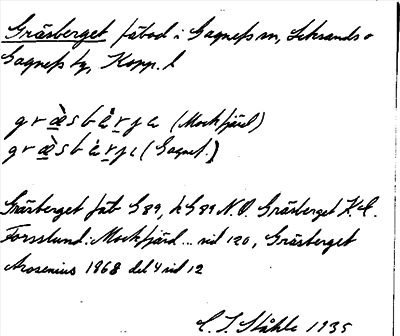 Gräsberget fäbod i Gagnefs sn, Leksands o
Gagnefs tg, Kopp. l
græ̀sbæ̀rja (Mockfjärd)
græ̀sbæ̀rjɩ (Gagnef.)
Gräsberget fäb G 89, h G 89 N.V. Gräsberget K.E.
Forsslund: Mockfjärd... sid 120, Gräsberget
Arosenius 1868 del 4 sid 12
C. I. Ståhle 1935